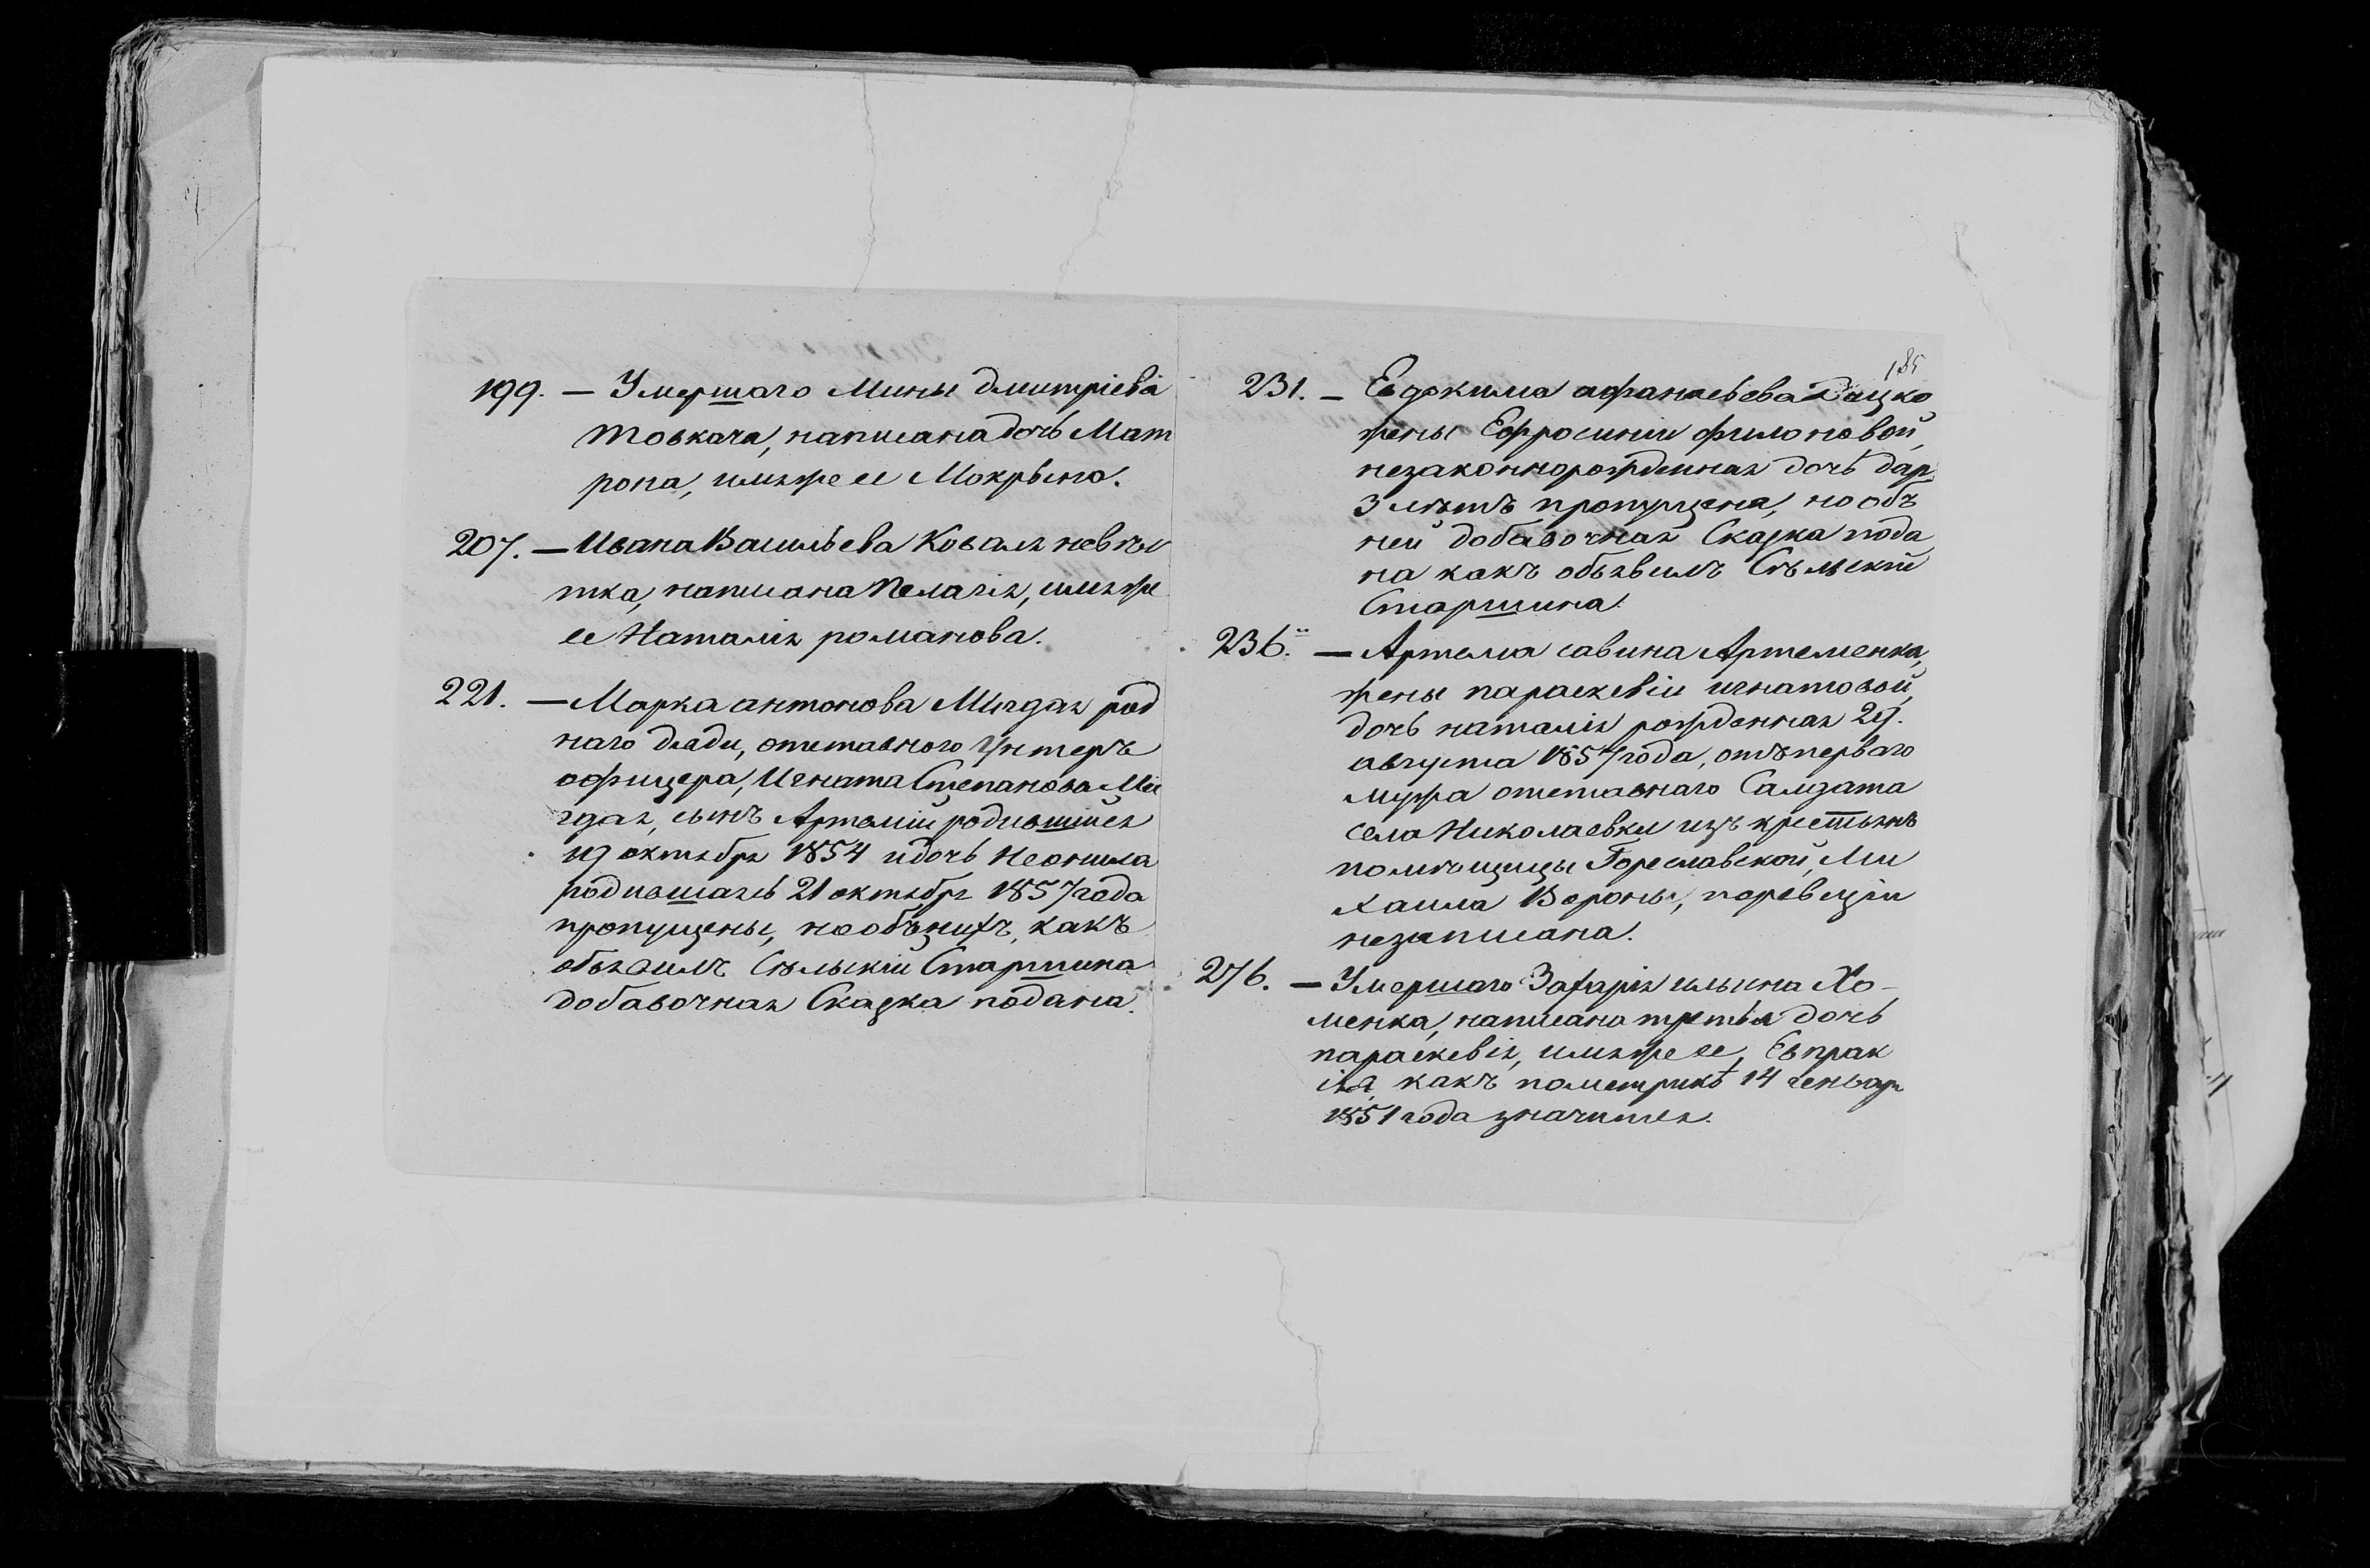 199. — Умершаго Мины Дмитріева
Товкача, написана дочь Мат
рона, имя же ее Мокрына.
207. — Ивана Васильева Коваля невѣс
тка, написана Пелагія, имя же
ее Наталія романова.
221. — Марка антонова Мигдая род
наго дяди, отставного Унтеръ
офицера, Игната Степанова Ми
гдая, сынъ Артемій родившийся
19 октября 1854 и дочь Неонила
родившаясь 21 октября 1857 года
пропущены, но объ нихъ, какъ
объявилъ Сѣльскій Старшина
добавочная Сказка подана.
185
231. — Евдокима афанасьева Дацко
жены Ефросиніи филоновой,
незаконнорожденная дочь дар
3 лѣтъ пропущена, но объ
ней добавочная Сказка пода
на какъ объявилъ Сѣльскій
Старшина.
236. — Артема савина Артеменка,
жены параскевіи игнатовой,
дочь наталія рожденная 29.
августа 1857 года, отъ перваго
мужа отставнаго Салдата
села Николаевки изъ крестьянъ
помѣщицы Гореславской, Ми
хаила Вороны, по ревизіи
незаписана.
276. — Умершаго Захарія ильина Хо-
менка, написана третья дочь
параскевія, имя же ее, Евпрак
сія, какъ пометрикѣ 14 генваря
1851 года значится.